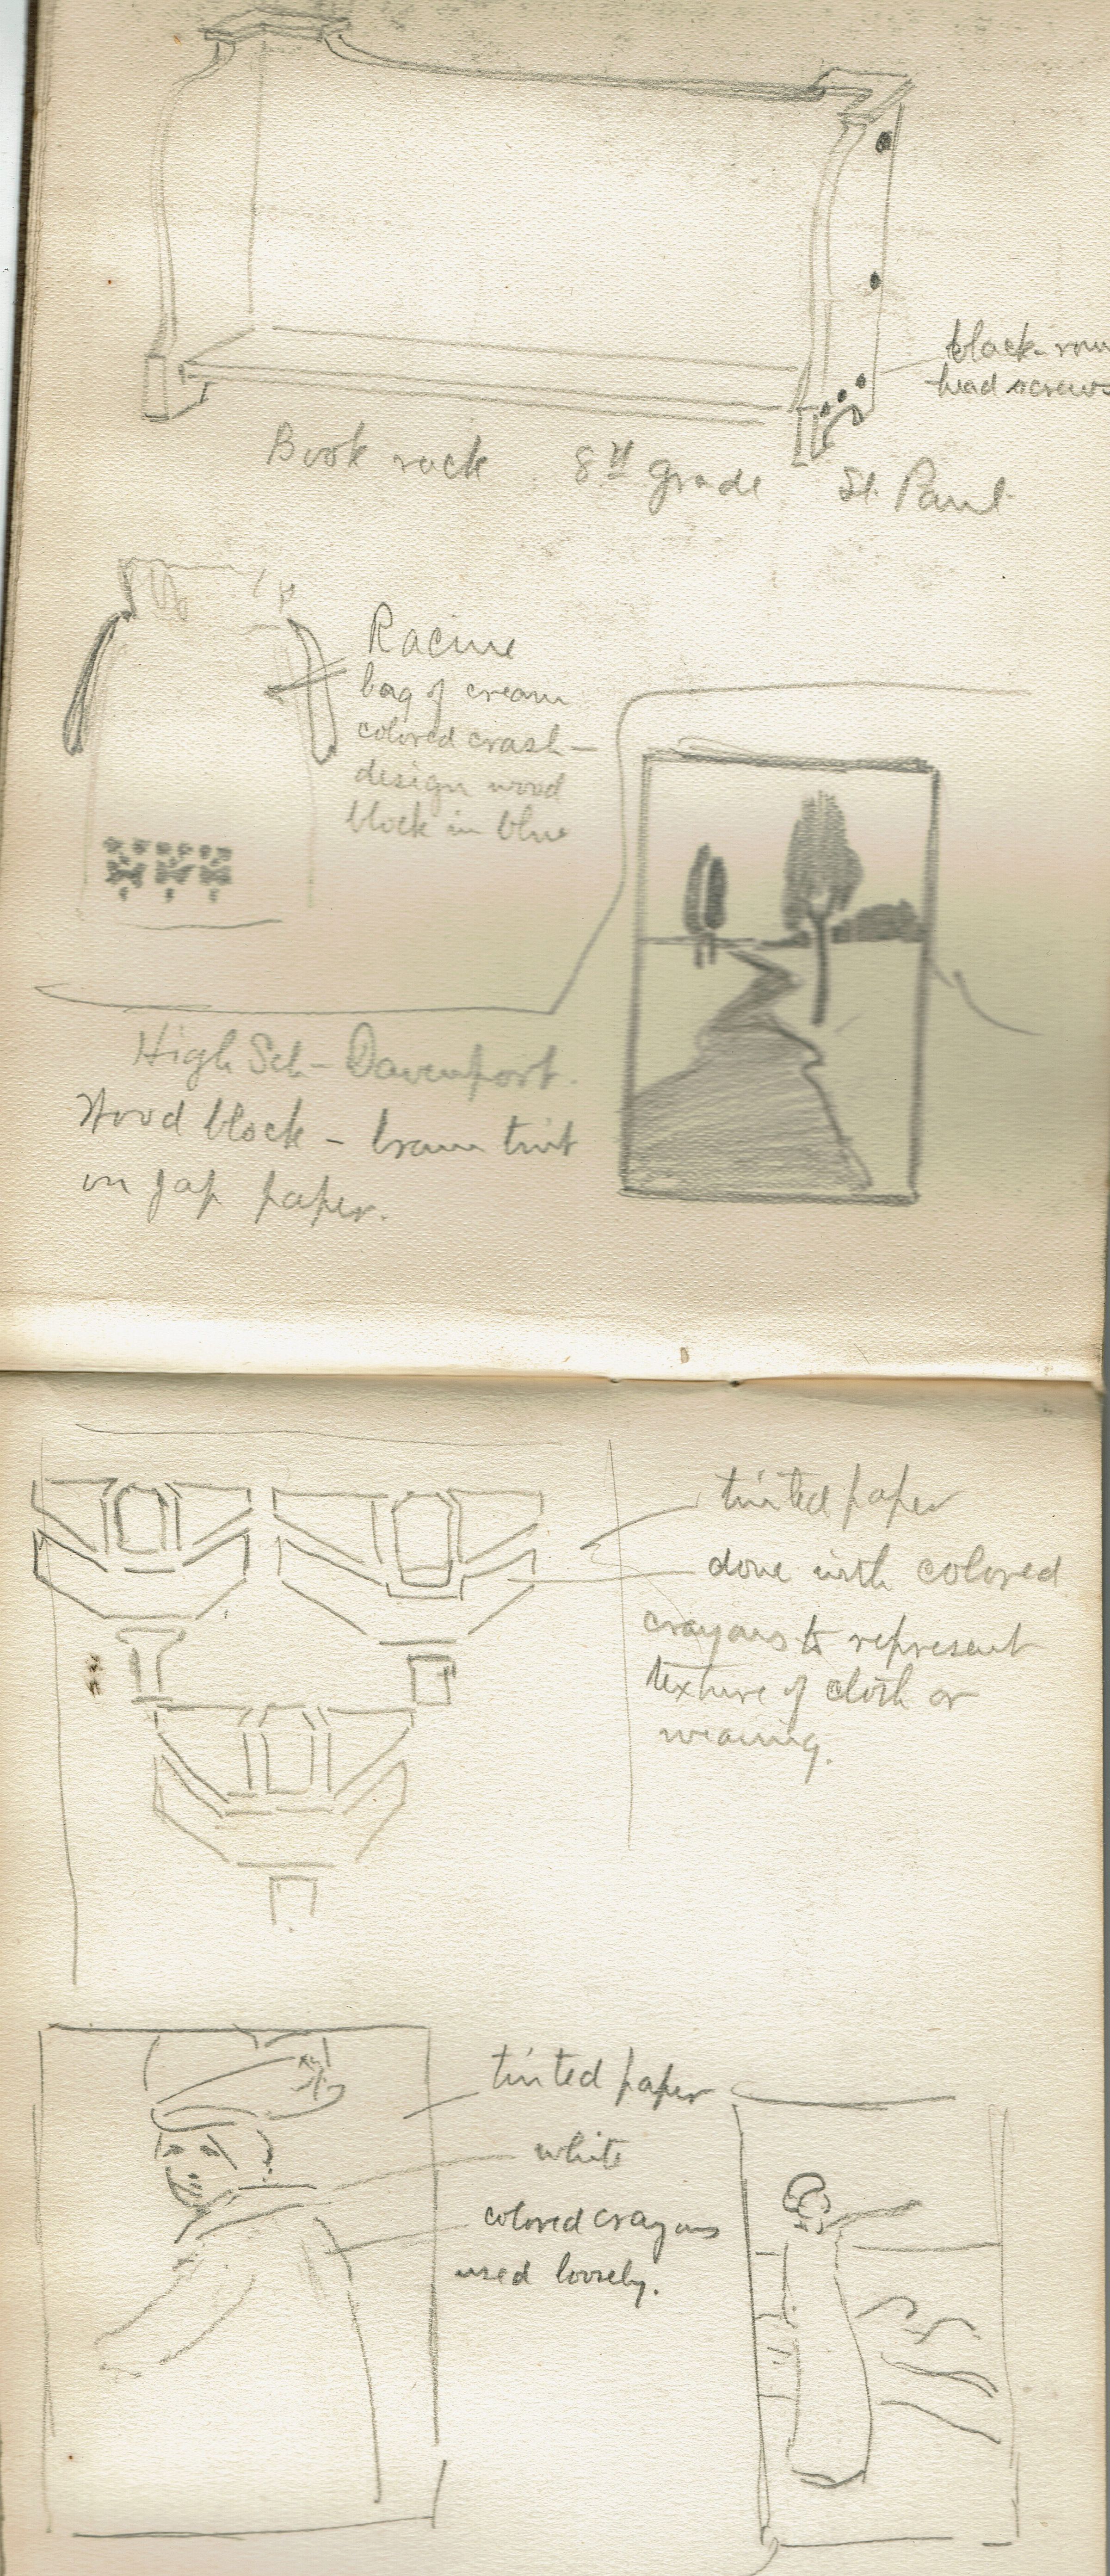 black-roun
head screws
Book rack 8th grade St. Paul
Racine
bag of cream
colored crash—
design wood
block in blue
High Sch—Davenport.
Wood block — brown tint
on Jap paper.
tinted paper
done with colored
crayons to represent
texture of cloth or
weaving.
tinted paper
white
colored crayons
used loosely.